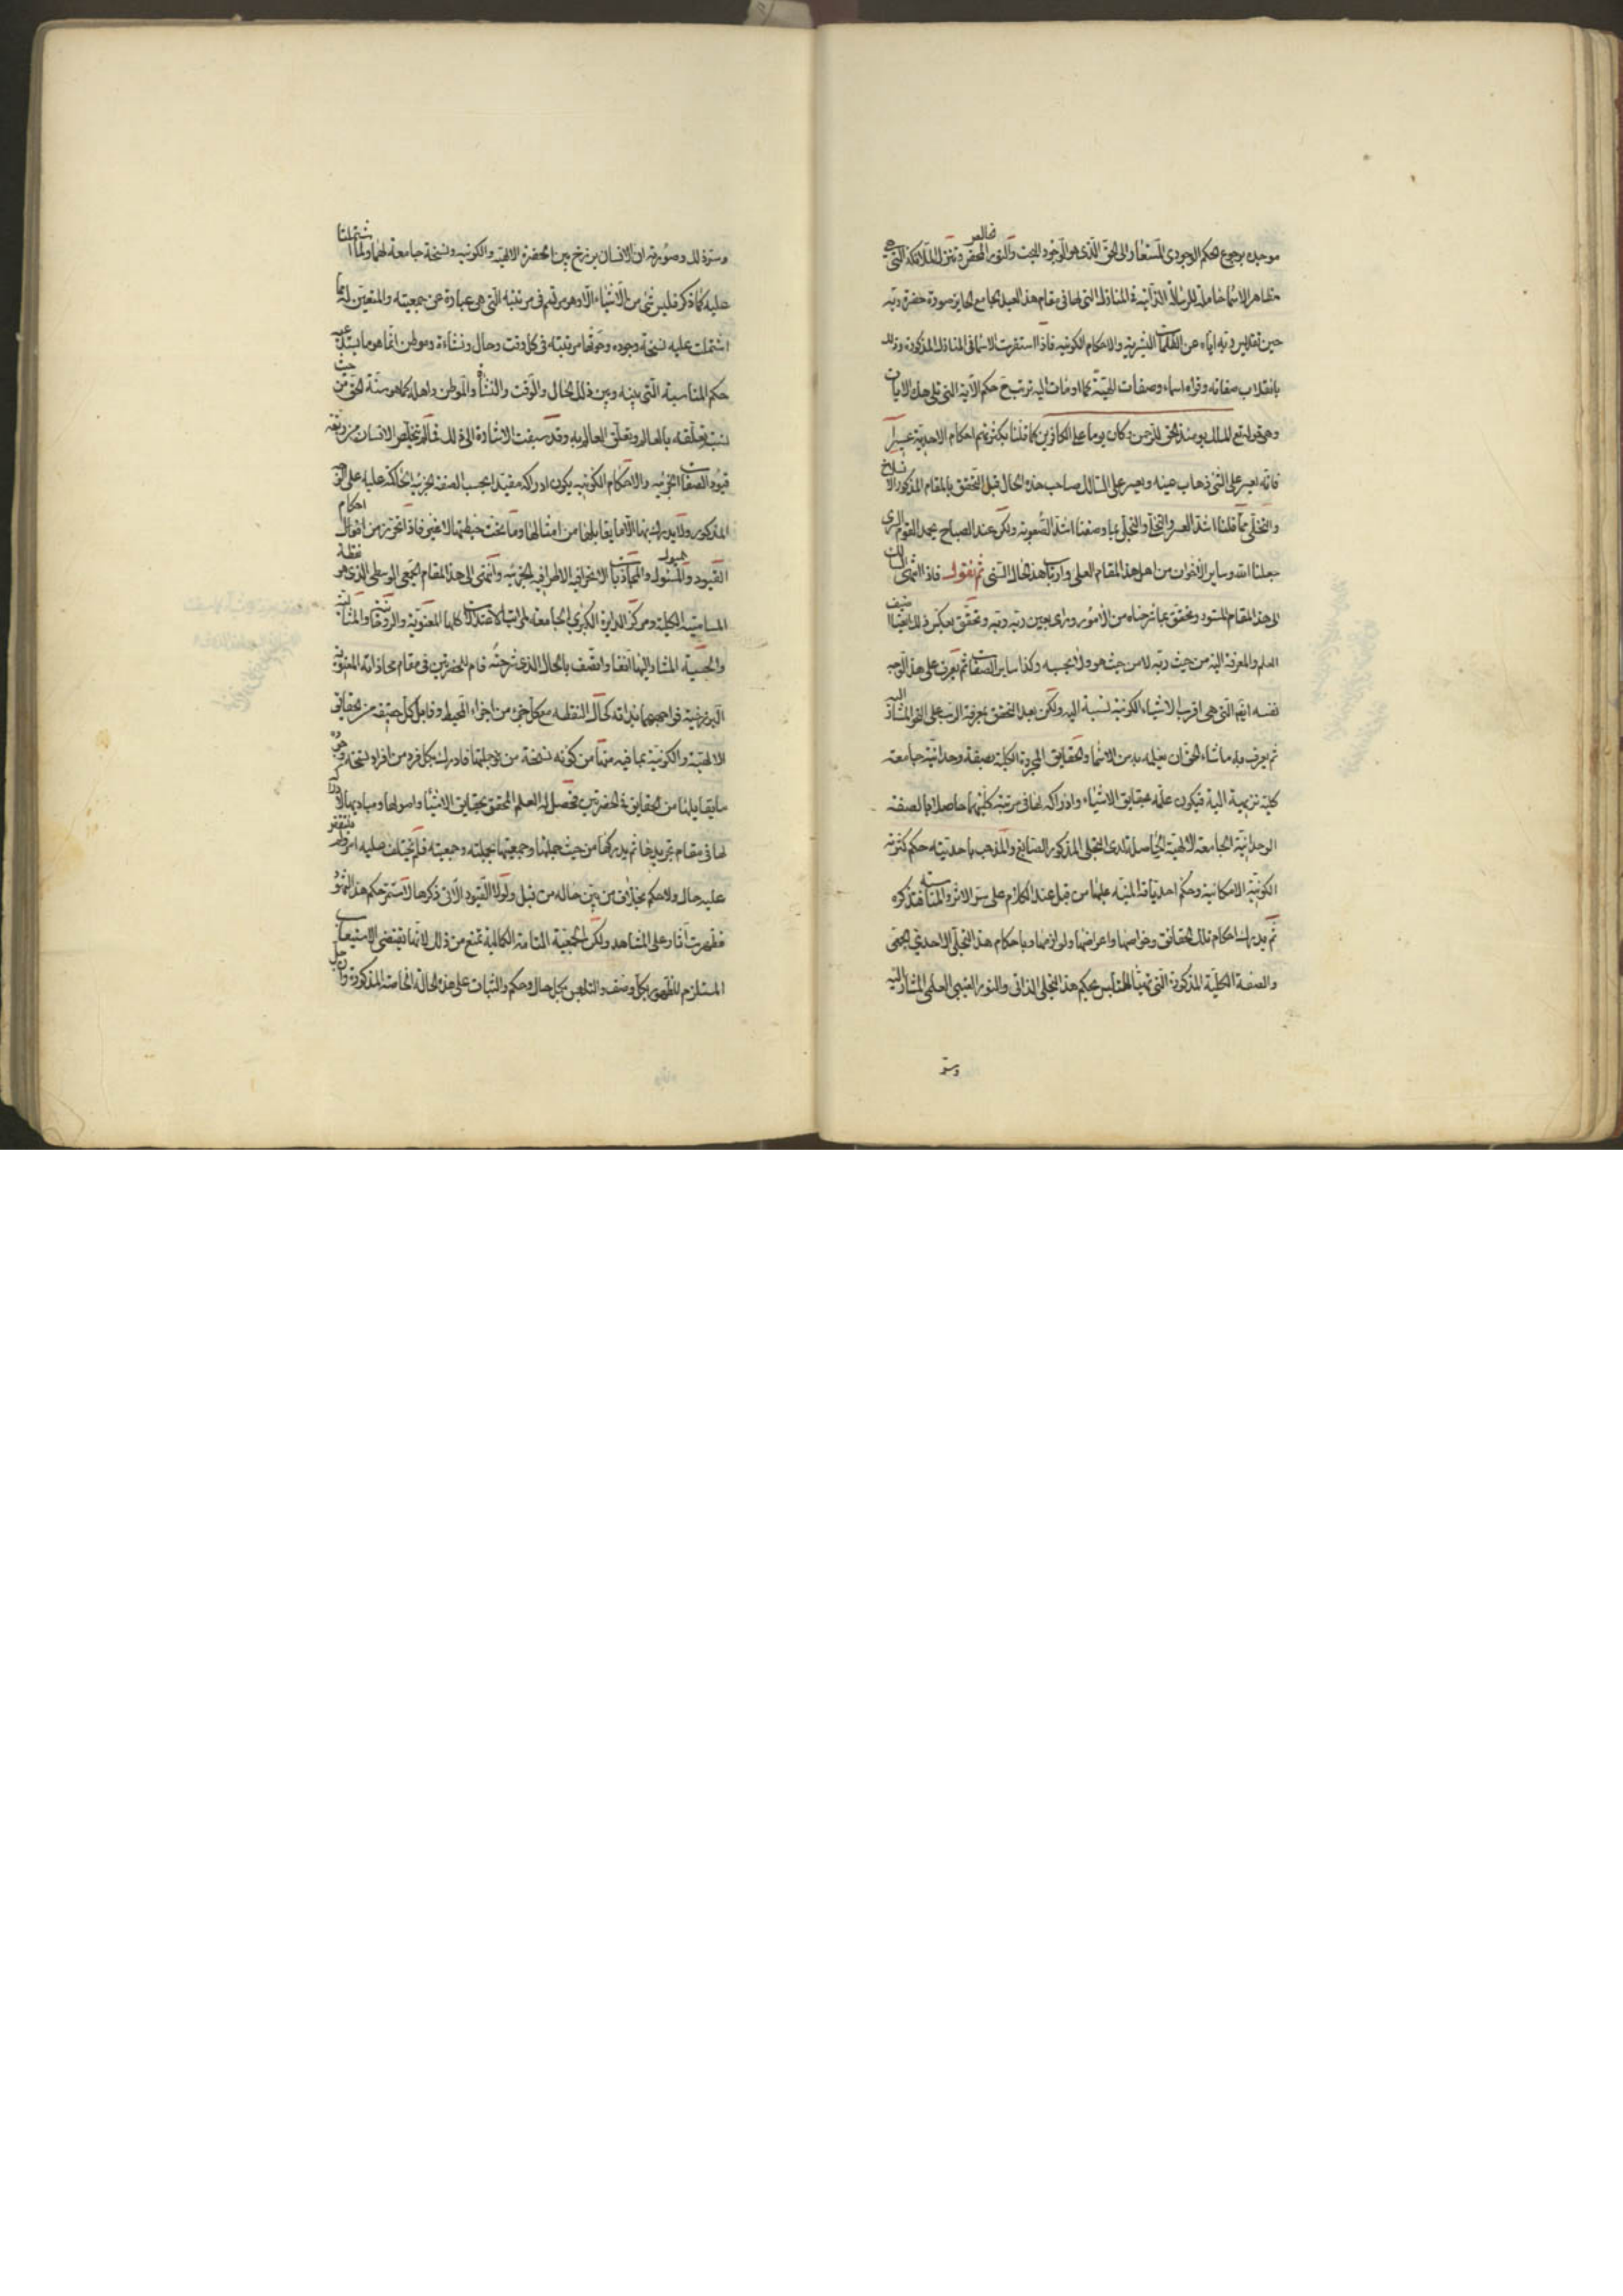 موحده برجوع الحكم الوجودى المستعار الى الحق الذى هو الوجود البحت والنور المحض الخالص وتنزل الملائكة التى هى
مظاهر الاسما حاملة للرسالة الذاتية فى المنازل التى لها فى مقام هذا العبد الجامع الحايز صورة حضرة ربه
حين تقديس ربه اياه عن الظلمات البشرية والاحكام الكونية فاذا استقرت الاسما فى المنازل المذكورة وذلك
بانقلاب صفاته وقواه اسماء وصفات الهية كما اومأت اليه ترتب ح حكم الآية التى تلى هذه الآيات
وهى قوله تع الملك يومئذ الحق للرحمن وكان يوما على الكافرين كما قلنا بكثرتهم احكام الاحدية عسيرا
فانه يعسر على الشئ ذهاب عينه ويعسر على السالك صاحب هذه الحال قبل التحقق بالمقام المذكور الانسلاخ
والتخلى مما قلنا اشد العسر والتحلى والتجلى بما وصفنا اشد الصعوبة ولكن عند الصباح يحمد القوم السرى
جعلنا الله وساير الاخوان من اهل هذا المقام العلى وارباب هذه الحال السنى ثم نقول فاذا انتهى السالك
الى هذا المقام المستور وتحقق بما شرحناه من الامور ورأى بعين ربه ربه وتحقق بعكس ذلك ايضا اضيف
العلم والمعرفة اليه من حيث ربه لا من حيث هو ولا بحسبه وكذا ساير الصفات ثم يعرف على هذا الوجه
نفسه ايضا التى هى اقرب الاشياء الكونية نسبة اليه ولكن بعد التحقق بمعرفة الرب على النحو المشار اليه
ثم يعرف به ما شاء الحق ان يعلمه به من الاسما والحقايق المجردة الكلية بصفة وحدانية جامعة
كلية نزيهة الهية فيكون علمه بحقايق الاشياء وادراكه لها فى مرتبة كليتها حاصلا بالصفة
الوحدانية الجامعة الالهية الحاصلة لدى التجلى المذكور الصابغ والمذهب باحديته حكم كثرته
الكونية الامكانية وحكم احدياته المنبه عليها من قبل عند الكلام على سر الاثر والمناسبة فتذكره
ثم يدرك احكام تلك الحقايق وخواصها واعراضها ولوازمها وباحكام هذا التجلى الاحدى الجمعى
والصفة الكلية المذكورة التى تهيأ للتلبس بحكم هذا التجلى الذاتى والنور الغيبى العلمى المشار اليه
وسر
وسر ذلك وصورته ان الانسان برزخ بين الحضرة الالهية والكونية ونسخة جامعة لهما ولما اشتملتا
عليه كما ذكر فليس شئ من الاشياء الا وهو مرتسم فى مرتبته التى هى عبارة عن جمعيته والمتعين له بما
اشتملت عليه نسخة وجوده وحوتها مرتبته فى كل وقت وحال ونشأة وموطن انما هو ما يستدعيه
حكم المناسبة التى بينه وبين ذلك الحال والوقت والنشأة والموطن واهله كما هو سنة الحق من حيث
نسبة تعلقه بالعالم وتعلق العالم به وقد سبقت الاشارة الى ذلك فما لم يتخلص الانسان من ربقة
قيود الصفات الجزئية والاحكام الكونية يكون ادراكه مقيدا بحسب الصفة الجزئية الحاكمة عليه على الوجه
المذكور ولا يدرك بها الا ما يقابلها من امثالها وما تحت حيطتها لا غير فاذا تجرد من احكام
القيود والميول والمجاذبات الانحرافية الاطرافية الجزئية وانتهى الى هذا المقام الجمعى الوسطى الذى هو نقطة
المسامتة الكلية ومركز الدايرة الكبرى الجامعة لمراتب الاعتدالات كلها المعنوية والروحانية والمثالية
والحسية المشار اليها آنفا واتصف بالحال الذى شرحته قام للحضرتين فى مقام محاذاته المعنوية
البرزخية فواجههما بذاته كحال النقطة مع كل جزء من اجزاء المحيط وقابل كل حقيقة من الحقايق
الالهية والكونية بما فيه منها من كونه نسخة من جملتها فادرك بكل فرد من افراد نسخة وجوده
ما يقابلها من الحقايق فى الحضرتين فحصل له العلم المحقق بحقايق الاشياء واصولها ومباديها لادراكه
لها فى مقام تجريدها ثم يدركها من حيث جملتها وجمعيتها بجملته وجمعيته فلم يختلف عليه امر ولم ينتقض
عليه حال ولا حكم بخلاف من بين حاله من قبل ولولا القيود الاتى ذكرها لاستمر حكم هذا الشهود
فظهرت آثاره على المشاهد ولكن الجمعية التامة الكمالية تمنع من ذلك لانها تقتضى الاستيعاب
المستلزم للظهور بكل وصف والتلبس بكل حال وحكم والثبات على هذه الحالة الخاصة المذكورة وان جل